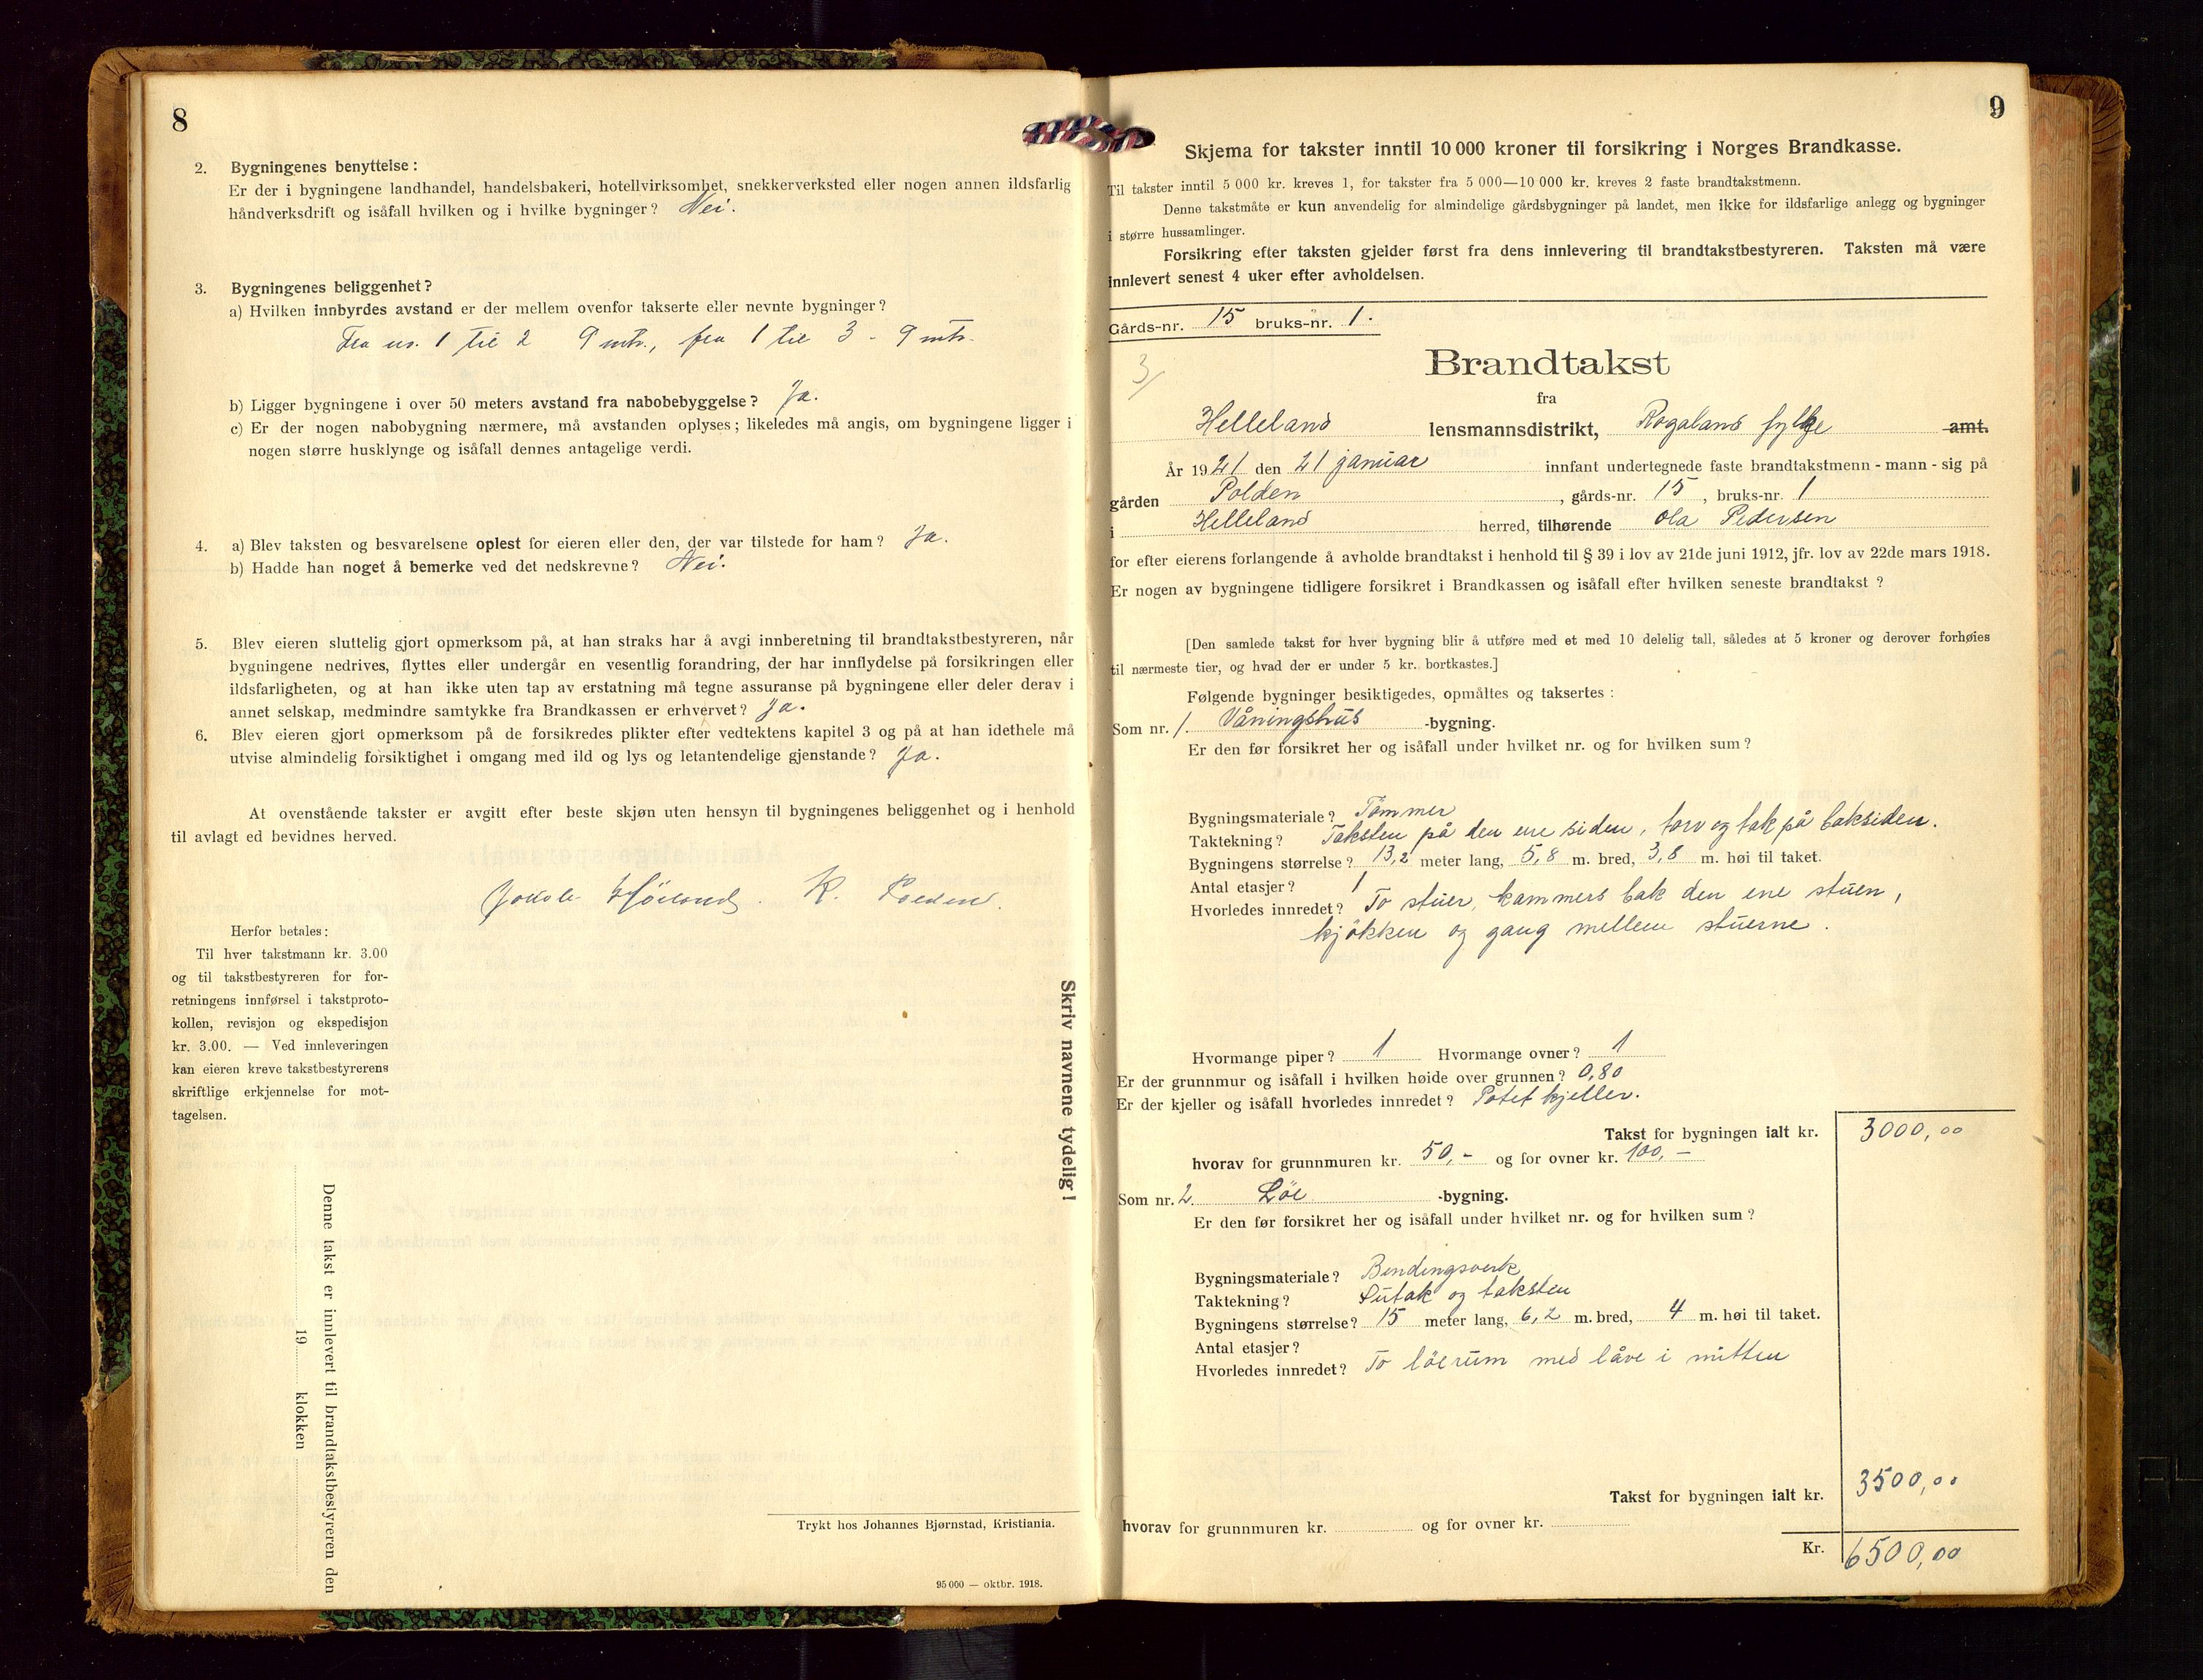 8
2. Bygningenes benyttelse:
Er der i bygningene landhandel, handelsbakeri, hotellvirksomhet, snekkerverksted eller nogen annen ildsfarlig
håndverksdrift og isåfall hvilken og i hvilke bygninger? Nei.
3. Bygningenes beliggenhet?
a) Hvilken innbyrdes avstand er der mellem ovenfor takserte eller nevnte bygninger?
Fra nr. 1 til 2 9 mtr., fra 1 til 3 - 9 mtr.
b) Ligger bygningene i over 50 meters avstand fra nabobebyggelse? Ja.
c) Er der nogen nabobygning nærmere, må avstanden oplyses; likeledes må angis, om bygningene ligger i
nogen større husklynge og isåfall dennes antagelige verdi.
4. a) Blev taksten og besvarelsene oplest for eieren eller den, der var tilstede for ham? Ja.
b) Hadde han noget å bemerke ved det nedskrevne? Nei.
5. Blev eieren sluttelig gjort opmerksom på, at han straks har å avgi innberetning til brandtakstbestyreren, når
bygningene nedrives, flyttes eller undergår en vesentlig forandring, der har innflydelse på forsikringen eller
ildsfarligheten, og at han ikke uten tap av erstatning må tegne assuranse på bygningene eller deler derav i
annet selskap, medmindre samtykke fra Brandkassen er erhvervet? Ja.
6. Blev eieren gjort opmerksom på de forsikredes plikter efter vedtektens kapitel 3 og på at han idethele må
utvise almindelig forsiktighet i omgang med ild og lys og letantendelige gjenstande? Ja.
At ovenstående takster er avgitt efter beste skjøn uten hensyn til bygningenes beliggenhet og i henhold
til avlagt ed bevidnes herved.
K. Polden.
Herfor betales:
Til hver takstmann kr. 3.00
og til takstbestyreren for for-
retningens innførsel i takstproto-
kollen, revisjon og ekspedisjon
kr. 3.00. — Ved innleveringen
kan eieren kreve takstbestyrerens
skriftlige erkjennelse for mot-
tagelsen.
Skriv navnene tydelig!
Denne takst er innlevert til brandtakstbestyreren den
19 klokken
Trykt hos Johannes Bjørnstad, Kristiania.
95 000 — oktbr. 1918.
9
Skjema for takster inntil 10 000 kroner til forsikring i Norges Brandkasse.
Til takster inntil 5 000 kr. kreves 1, for takster fra 5 000—10 000 kr. kreves 2 faste brandtakstmenn.
Denne takstmåte er kun anvendelig for almindelige gårdsbygninger på landet, men ikke for ildsfarlige anlegg og bygninger
i større hussamlinger.
Forsikring efter taksten gjelder først fra dens innlevering til brandtakstbestyreren. Taksten må være
innlevert senest 4 uker efter avholdelsen.
Gårds-nr. 15 bruks-nr. 1.
3/
Brandtakst
fra
Helleland lensmannsdistrikt, Rogaland fylke amt.
År 1921 den 21 januar innfant undertegnede faste brandtakstmenn - mann - sig på
gården Polden, gårds-nr. 15, bruks-nr. 1
i Helleland herred, tilhørende Ola Pedersen
for efter eierens forlangende å avholde brandtakst i henhold til § 39 i lov av 21de juni 1912, jfr. lov av 22de mars 1918.
Er nogen av bygningene tidligere forsikret i Brandkassen og isåfall efter hvilken seneste brandtakst?
[Den samlede takst for hver bygning blir å utføre med et med 10 delelig tall, således at 5 kroner og derover forhøies
til nærmeste tier, og hvad der er under 5 kr. bortkastes.]
Følgende bygninger besiktigedes, opmåltes og taksertes:
Som nr. 1. Våningshus -bygning.
Er den før forsikret her og isåfall under hvilket nr. og for hvilken sum?
Bygningsmateriale? Tömmer
Taktekning? Taksten på den ene siden, torv og tak på baksiden.
Bygningens størrelse? 13,2 meter lang, 5,8 m. bred, 3,8 m. høi til taket.
Antal etasjer? 1
Hvorledes innredet? To stuer, kammers bak den ene stuen,
kjökken og gang mellem stuerne.
Hvormange piper? 1 Hvormange ovner? 1
Er der grunnmur og isåfall i hvilken høide over grunnen? 0,80
Er der kjeller og isåfall hvorledes innredet? Potetkjeller.
Takst for bygningen ialt kr. 3000,00
hvorav for grunnmuren kr. 50,- og for ovner kr. 100,-
Som nr. 2. Löe -bygning.
Er den før forsikret her og isåfall under hvilket nr. og for hvilken sum?
Bygningsmateriale? Bindingsverk
Taktekning? Sutak og taksten
Bygningens størrelse? 15 meter lang, 6,2 m. bred, 4 m. høi til taket.
Antal etasjer?
Hvorledes innredet? To löerum med låve i mitten
Takst for bygningen ialt kr. 3500,00
hvorav for grunnmuren kr. og for ovner kr.
Kr. 6500,00